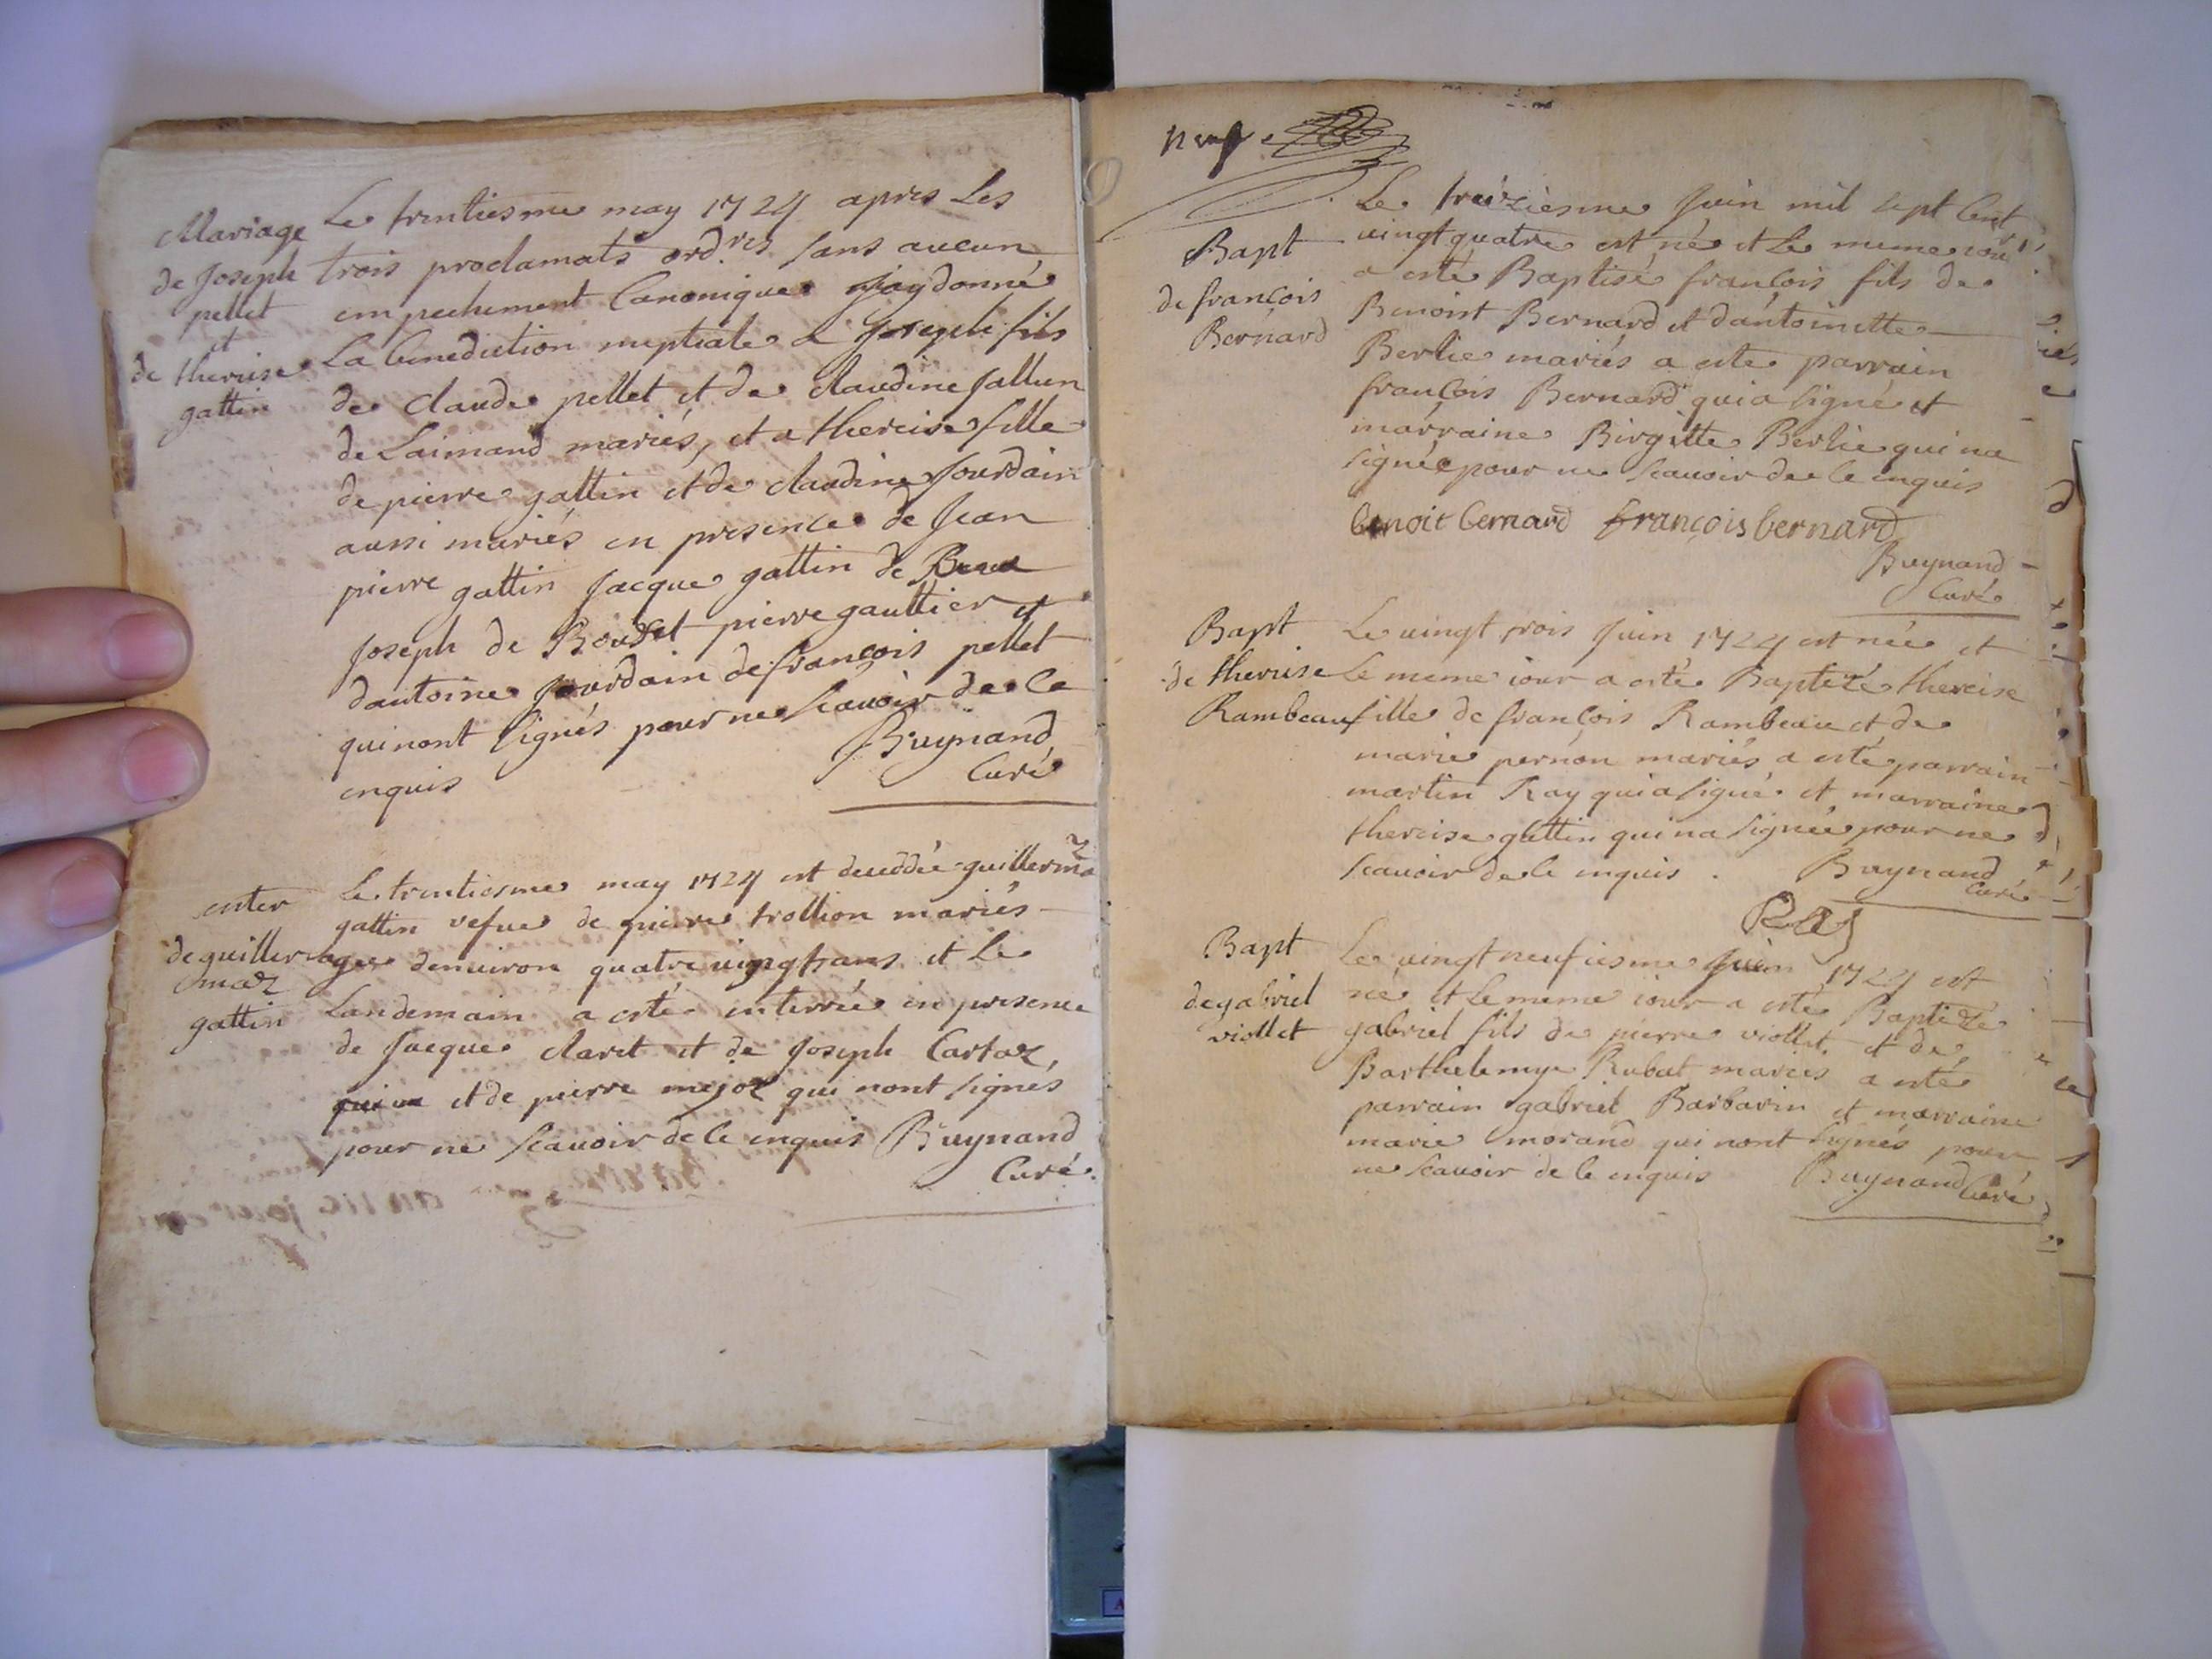 Mariage
de Joseph
pellet
et
de therese
gattin
Le trentiesme may 1724 apres Les
trois proclamats ord.res sans aucun
empechement Canonique Jay donné
La benediction nuptiale a Joseph fils
de claude pellet et de claudine Jallun
de Laimand mariés, et a thereise fille
de pierre gattin et de claudine Jourdain
aussi mariés en presence de Jean
pierre gattin Jacque gattin de
Joseph de pierre gaultier et
dantoine Jourdain de françois pellet
qui nont signés pour ne scavoir de ce
enquis
Buynand
Curé
enter
de guiller
maz
gattin
Le trentiesme may 1724 est deceddée guillermaz
gattin vefue de pierre trollion mariés
agee denuiron quatre vingt ans et Le
Landemain a esté enterrée en presence
de Jacque claret et de Joseph Cartaz
et de pierre mejoz qui nont signés
pour ne scauoir de ce enquis Buynand
Curé
neuf
Bapt
de françois
Bernard
Le treiziesme Juin mil sept Cent
vingt quatre est né et Le meme iour
a esté Baptisé françois fils de
Benoist Bernard et dantoinette
Berlie mariés a esté parrain
françois Bernard qui a signé et
marraine Birgitte Berlie qui na
signée pour ne scauoir de ce enquis
benoit bernard françois bernard
Buynand
Curé
Bapt
de therese
Rambeau
Le vingt trois Juin 1724 est née et
Le meme iour a esté Baptizé thereise
fille de françois Rambeau et de
marie pernon mariés a esté parrain
martin Ray qui a signé et marraine
thereise gattin qui na signée pour ne
scauoir de ce enquis . Buynand
Curé
Ray
Bapt
de gabriel
viollet
Le vingt neufiesme Juin 1724 est
né et Le meme iour a esté Baptizé
gabriel fils de pierre viollet et de
Barthelemye Rubat mariés a esté
parrain gabriel Barbarin et marraine
marie morand qui nont signés pour
ne scauoir de ce enquis Buynand Curé